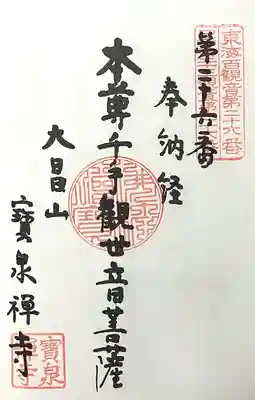 東海百観音第二十六番
第二十六番
奉納経
本尊千手観世音菩薩
大昌山
寳泉禅寺
寳泉